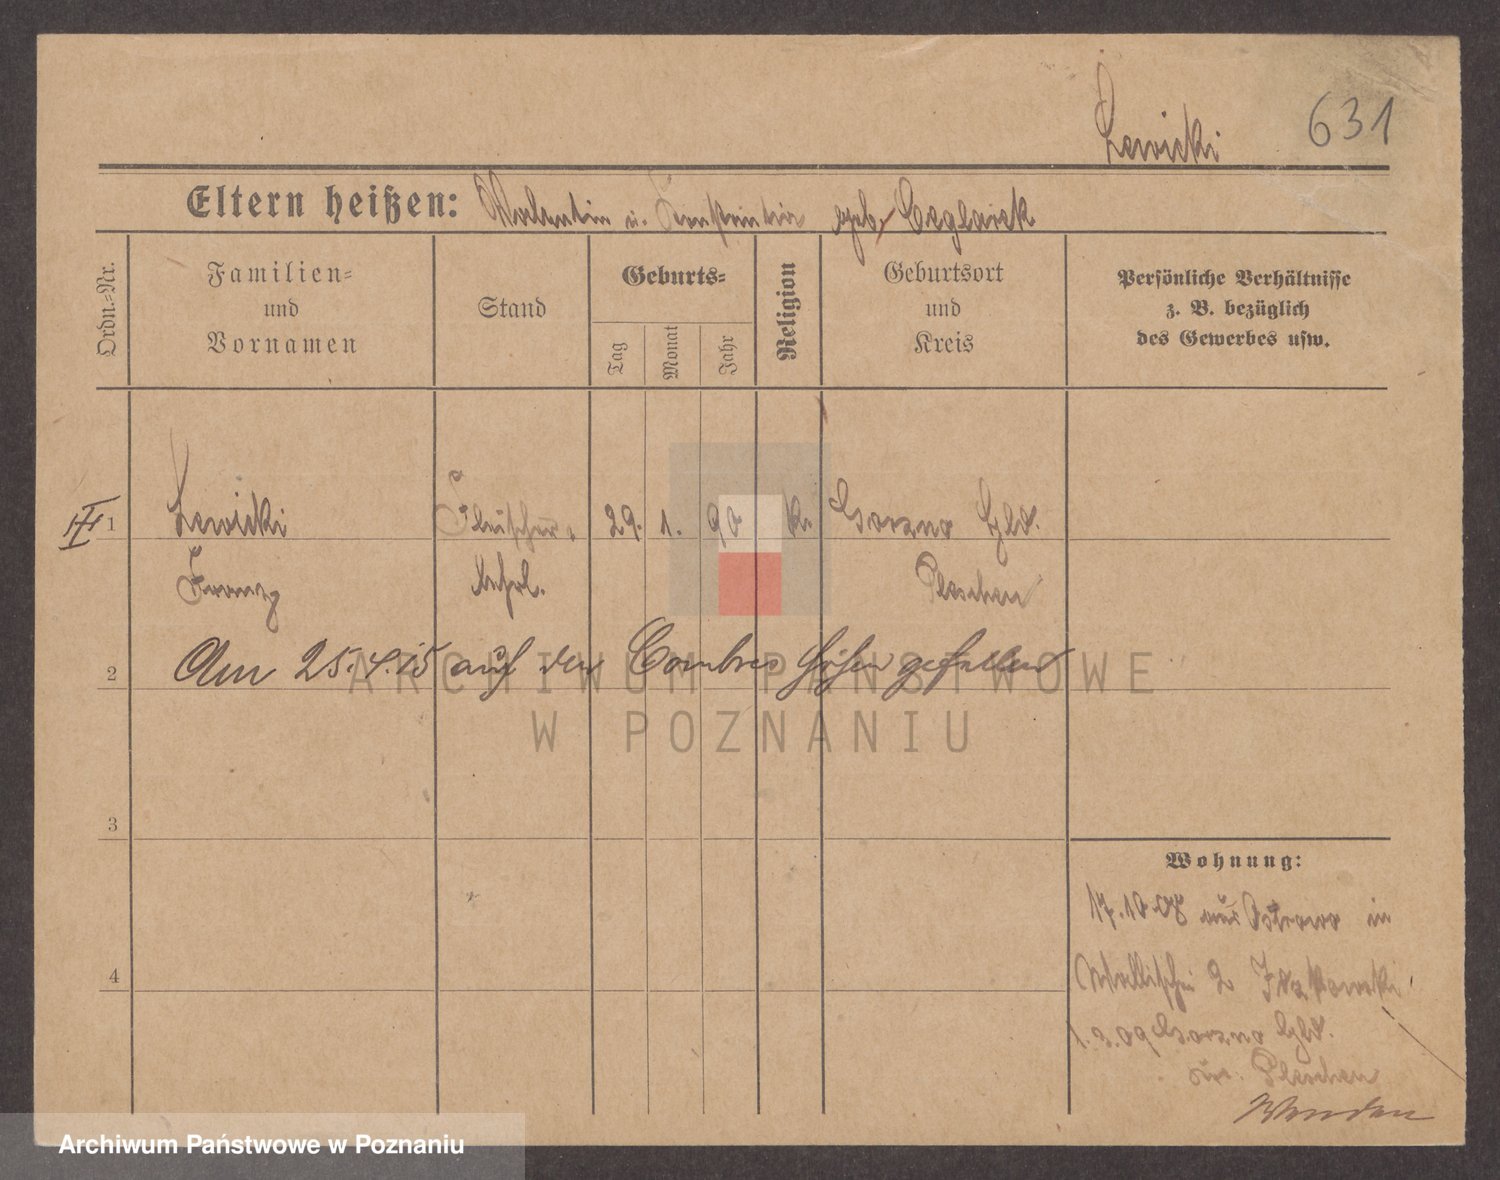 Lewicki 631
Eltern heißen: Valentin u. Konstantia geb. Ceglarek
Ordn.-Nr.
Familien-
und
Vornamen
Stand
Geburts-
Tag
Monat
Jahr
Religion
Geburtsort
und
Kreis
Persönliche Verhältnisse
z. B. bezüglich
des Gewerbes usw.
1 Lewicki Fleischer- 29. 1. 90 k. Gorzno Gld.
Franz lehrl. Pleschen
2 Am 25.4.15 auf den Combres Höhen gefallen
ARCHIWUM PAŃSTWOWE
W POZNANIU
3
4
Wohnung:
17.10.08 aus Ostrowo in
Wallischei 2
1.3.09 Gorzno Gld.
Pleschen
Archiwum Państwowe w Poznaniu